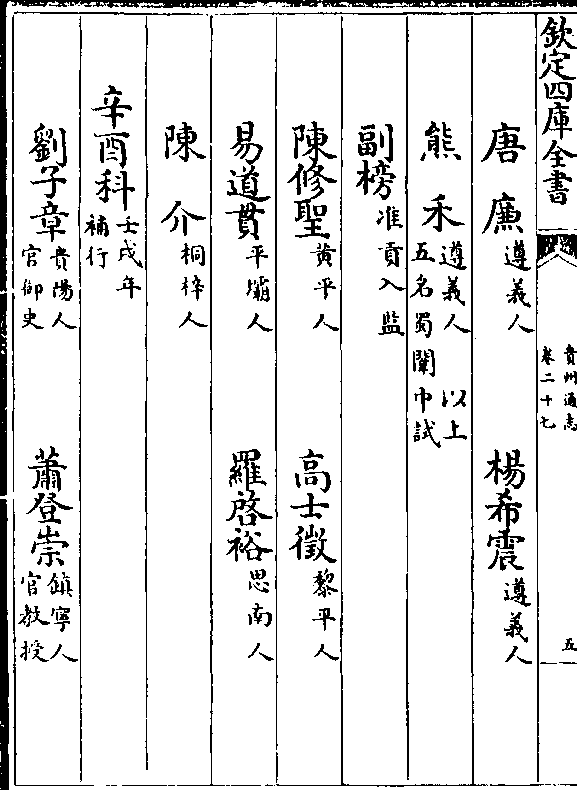 欽定四庫全書
貴州通志
卷二十七
五
唐廉 遵義人 楊希震 遵義人
熊禾 遵義人 以上五名蜀闈中試
副榜 准貢入監
陳修聖 黃平人 高士徵 黎平人
易道貫 平壩人 羅啓裕 思南人
陳介 桐梓人
辛酉科 壬戌年補行
劉子章 貴陽人官御史 蕭登崇 鎮寧人官教授